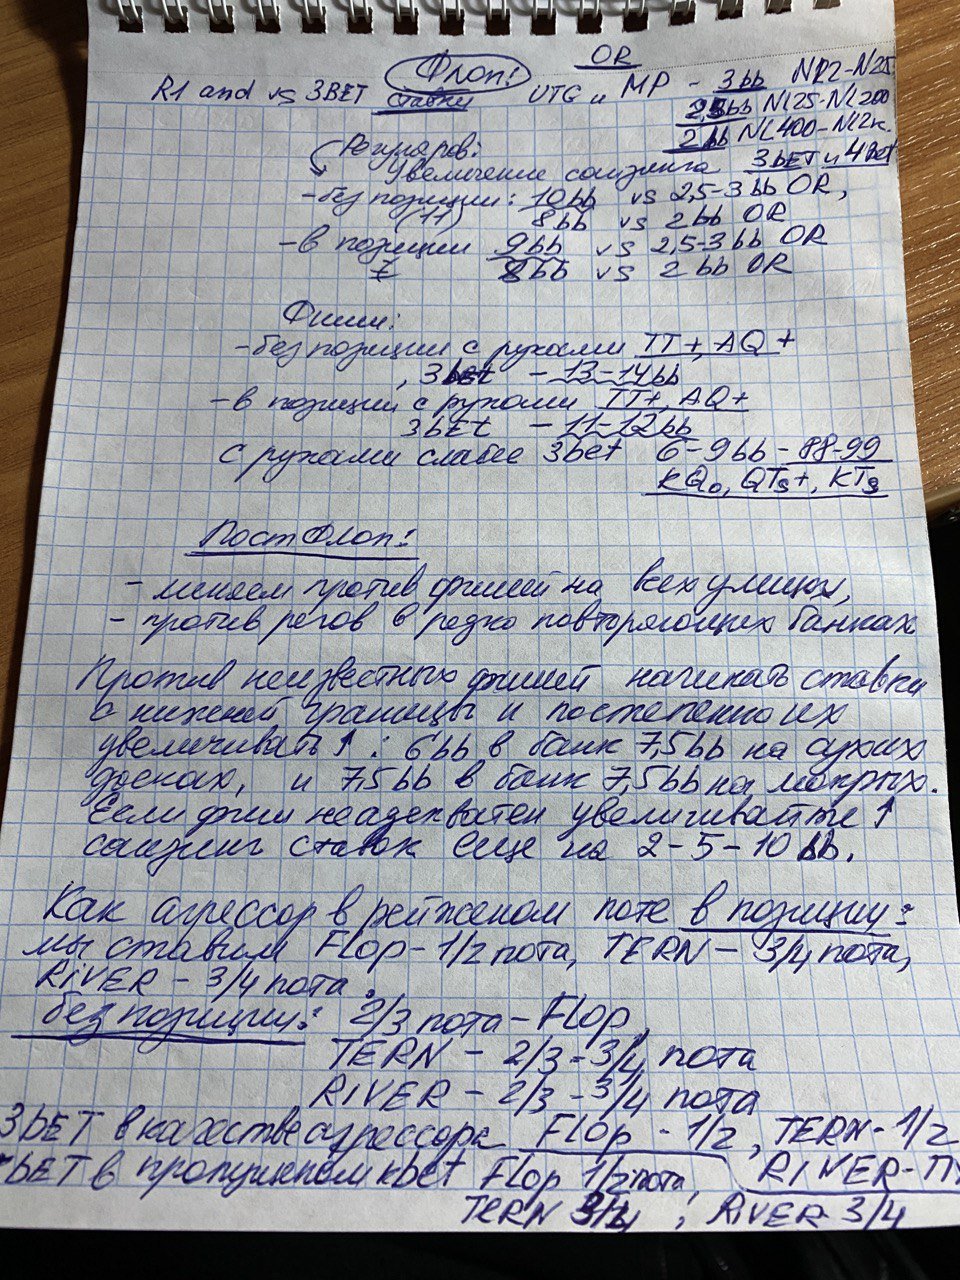 Флоп: OR
R1 and vs 3BET ставки UTG и MP - 3bb NL2-NL25
2,5bb NL25-NL200
2bb NL400-NL2к.
Регуляров: 3bET и 4Bet
Увеличение сайзинга
- без позиции: 10bb vs 2,5-3bb OR,
(11) 8bb vs 2bb OR
- в позиции 9bb vs 2,5-3bb OR
7 8bb vs 2bb OR
Фиши:
- без позиции с руками TT+, AQ+
, 3bet - 13-14bb
- в позиции с руками TT+, AQ+
3bEt - 11-12bb
с руками слабее 3bet 6-9bb - 88-99
KQo, QTs+, KTs
Постфлоп:
- меняем против фишей на всех улицах,
- против регов в редко повторяющих банках
Против неизвестных фишей начинать ставки
с нижней границы и постепенно их
увеличивать ↑ : 6bb в банк 7,5bb на сухих
досках, и 7,5bb в банк 7,5bb на мокрых.
Если фиш неадекватен увеличивайте ↑
сайзинг ставок еще на 2-5-10 bb.
Как агрессор в рейженом поте в позиции:
мы ставим FLop - 1/2 пота, TERN - 3/4 пота,
RiVER - 3/4 пота.
без позиции: 2/3 пота - FLop,
TERN - 2/3 - 3/4 пота
RiVER - 2/3 - 3/4 пота
3bET в качестве агрессора FLop - 1/2, TERN - 1/2
bET в пропущеном cbet FLop 1/2 пота, RIVER -
TERN 3/4 ; RiVER 3/4